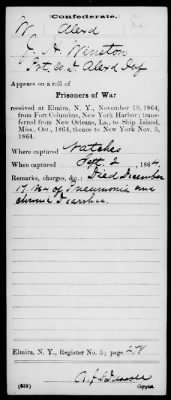 Confederate.
W Alexd
J. A. Winston
Pvt. Co. A. Alexd
Appears on a roll of
Prisoners of War
received at Elmira, N. Y., November 19, 1864,
from Fort Columbus, New York Harbor; trans-
ferred from New Orleans, La., to Ship Island,
Miss., Oct., 1864, thence to New York Nov. 5,
1864.
Where captured Natchez
When captured Sept. 2, 1864.
Remarks, charges, &c.: Died December
17, 1864 of Pneumonia and
chronic Diarrhea.
Elmira, N. Y., Register No. 3; page
(639)
Copyist.